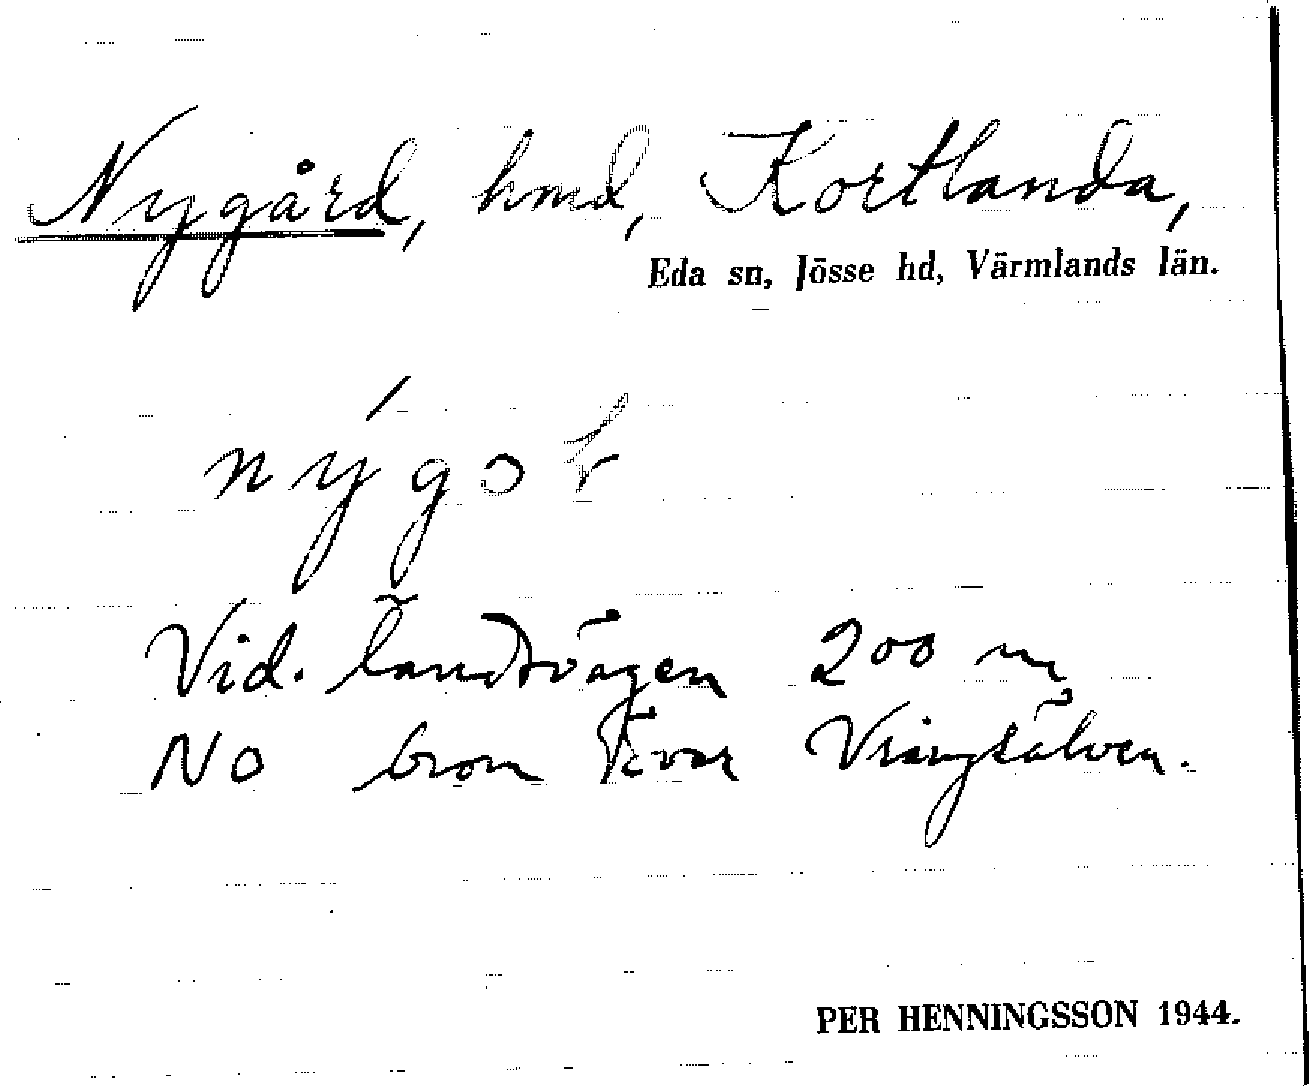 Nygård, hmd, Kortlanda,
Eda sn, Jösse hd, Värmlands län.
nýgo
Vid. landsvägen 200 m
NO bron över Vrångsälven.
PER HENNINGSSON 1944.